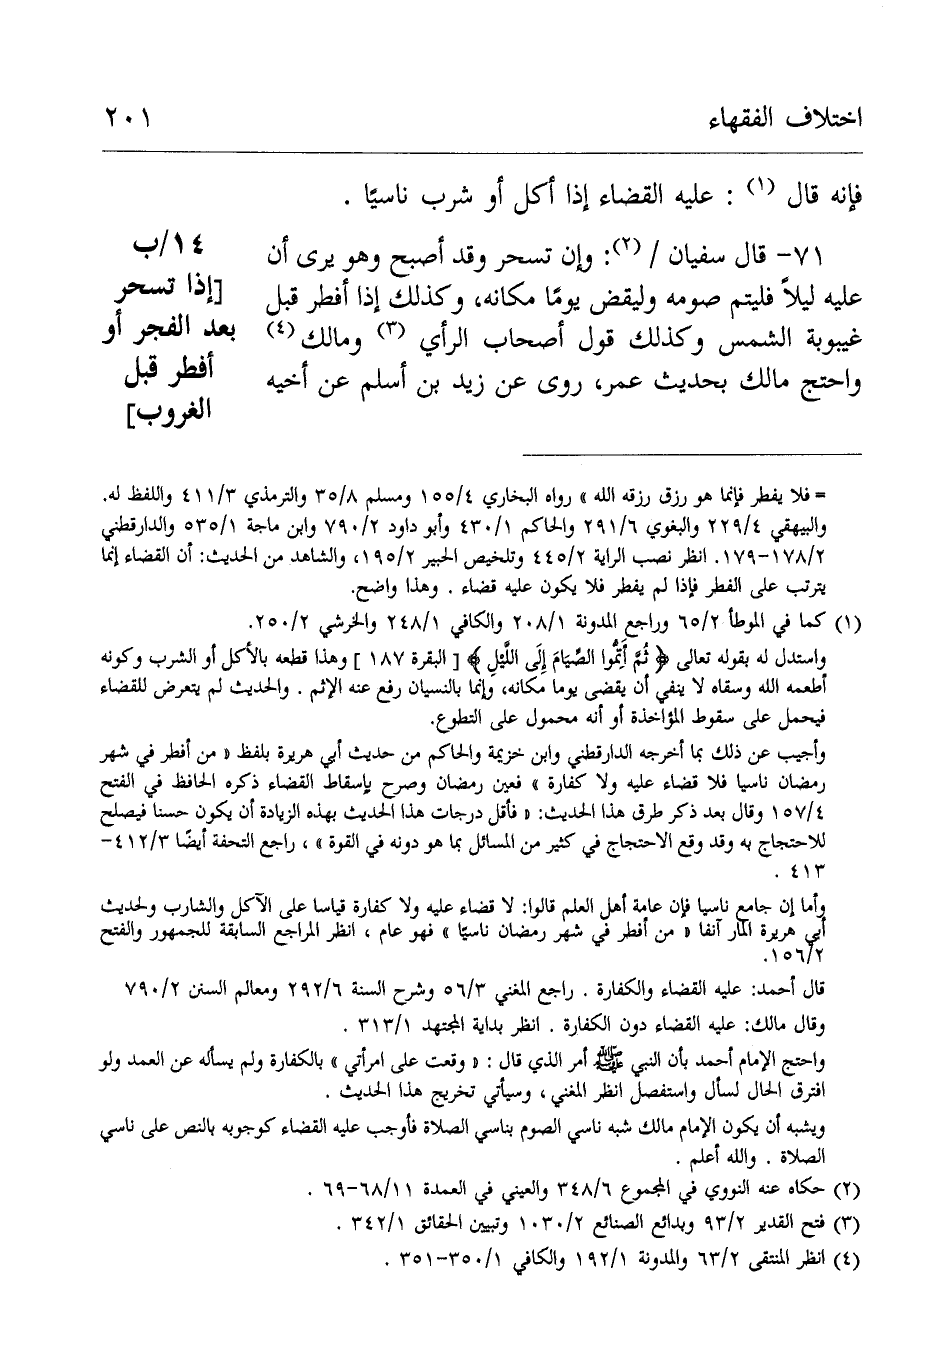 اختلاف الفقهاء
٢٠١
فإنه قال (١) : عليه القضاء إذا أكل أو شرب ناسيًا .
٧١- قال سفيان / (٢): وإن تسحر وقد أصبح وهو يرى أن
عليه ليلاً فليتم صومه وليقض يومًا مكانه، وكذلك إذا أفطر قبل
غيبوبة الشمس وكذلك قول أصحاب الرأي (٣) ومالك (٤)
واحتج مالك بحديث عمر، روى عن زيد بن أسلم عن أخيه
١٤/ب
[إذا تسحر
بعد الفجر أو
أفطر قبل
الغروب]
= فلا يفطر فإنما هو رزق رزقه الله » رواه البخاري ١٥٥/٤ ومسلم ٣٥/٨ والترمذي ٤١١/٣ واللفظ له.
والبيهقي ٢٢٩/٤ والبغوي ٢٩١/٦ والحاكم ٤٣٠/١ وأبو داود ٧٩٠/٢ وابن ماجة ٥٣٥/١ والدارقطني
١٧٨/٢-١٧٩. انظر نصب الراية ٤٤٥/٢ وتلخيص الحبير ١٩٥/٢، والشاهد من الحديث: أن القضاء إنما
يترتب على الفطر فإذا لم يفطر فلا يكون عليه قضاء . وهذا واضح.
(١) كما في الموطأ ٦٥/٢ وراجع المدونة ٢٠٨/١ والكافي ٢٤٨/١ والخرشي ٢٥٠/٢.
واستدل له بقوله تعالى ﴿ ثُمَّ أَتِمُّوا الصِّيَامَ إِلَى اللَّيْلِ ﴾ [ البقرة ١٨٧ ] وهذا قطعه بالأكل أو الشرب وكونه
أطعمه الله وسقاه لا ينفي أن يقضى يوما مكانه، وإنما بالنسيان رفع عنه الإثم . والحديث لم يتعرض للقضاء
فيحمل على سقوط المؤاخذة أو أنه محمول على التطوع.
وأجيب عن ذلك بما أخرجه الدارقطني وابن خزيمة والحاكم من حديث أبي هريرة بلفظ « من أفطر في شهر
رمضان ناسيا فلا قضاء عليه ولا كفارة » فعين رمضان وصرح بإسقاط القضاء ذكره الحافظ في الفتح
١٥٧/٤ وقال بعد ذكر طرق هذا الحديث: « فأقل درجات هذا الحديث بهذه الزيادة أن يكون حسنا فيصلح
للاحتجاج به وقد وقع الاحتجاج في كثير من المسائل بما هو دونه في القوة » ، راجع التحفة أيضًا ٤١٢/٣-
٤١٣ .
وأما إن جامع ناسيا فإن عامة أهل العلم قالوا: لا قضاء عليه ولا كفارة قياسا على الآكل والشارب ولحديث
أبي هريرة المار آنفا « من أفطر في شهر رمضان ناسيًا » فهو عام ، انظر المراجع السابقة للجمهور والفتح
١٥٦/٢.
قال أحمد: عليه القضاء والكفارة . راجع المغني ٥٦/٣ وشرح السنة ٢٩٢/٦ ومعالم السنن ٧٩٠/٢
وقال مالك: عليه القضاء دون الكفارة . انظر بداية المجتهد ٣١٣/١ .
واحتج الإمام أحمد بأن النبي ﷺ أمر الذي قال : « وقعت على امرأتي » بالكفارة ولم يسأله عن العمد ولو
افترق الحال لسأل واستفصل انظر المغني ، وسيأتي تخريج هذا الحديث .
ويشبه أن يكون الإمام مالك شبه ناسي الصوم بناسي الصلاة فأوجب عليه القضاء كوجوبه بالنص على ناسي
الصلاة . والله أعلم .
(٢) حكاه عنه النووي في المجموع ٣٤٨/٦ والعيني في العمدة ٦٨/١١-٦٩ .
(٣) فتح القدير ٩٣/٢ وبدائع الصنائع ١٠٣٠/٢ وتبيين الحقائق ٣٤٢/١ .
(٤) انظر المنتقى ٦٣/٢ والمدونة ١٩٢/١ والكافي ٣٥٠/١-٣٥١ .